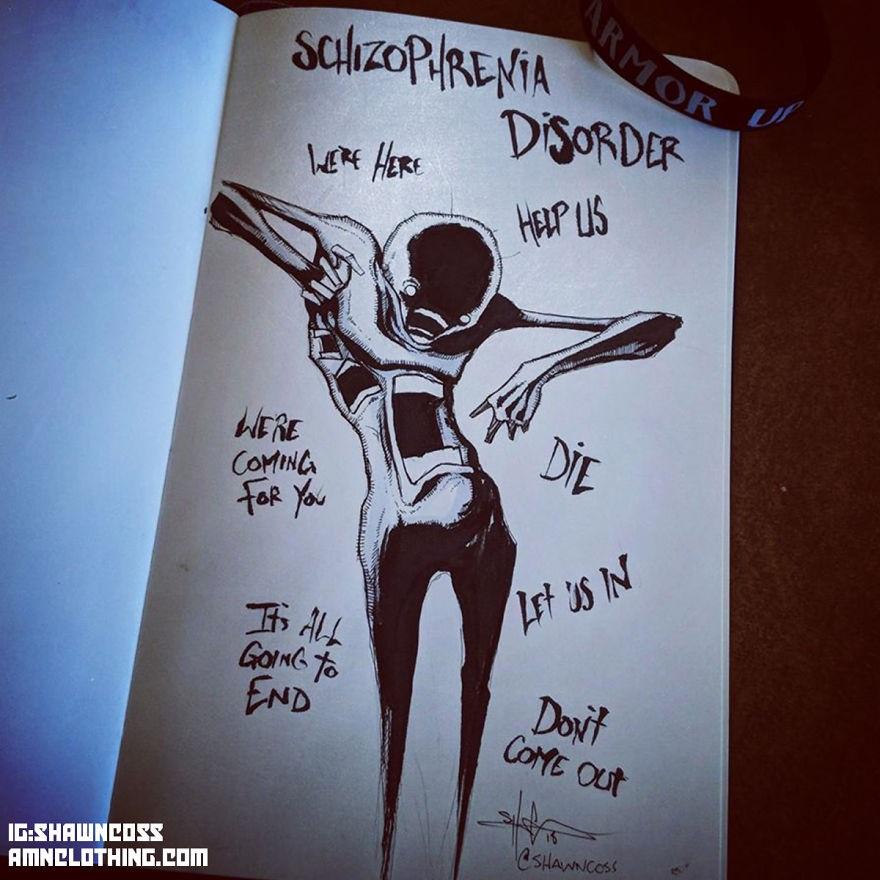 SCHIZOPHRENIA
DISORDER
ARMOR UP
WERE HERE
HELP US
WE'RE
COMING
FOR YOU
DIE
LET US IN
It's ALL
GOING to
END
DON't
COME OUt
18
@SHAWNCOSS
IG:SHAWNCOSS
AMNCLOTHING.COM